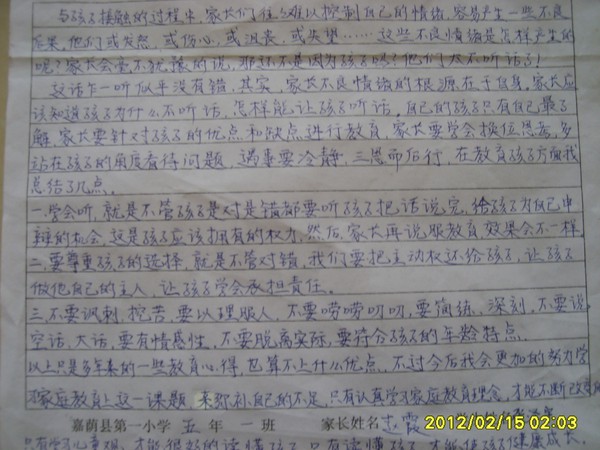 与孩子接触的过程中,家长们往往难以控制自己的情绪,容易产生一些不良
后果,他们或发怒,或伤心,或沮丧,或失望……这些不良情绪是怎样产生的
呢?家长会毫不犹豫的说,那还不是因为孩子吗?他们太不听话了!
这话乍一听似乎没有错,其实,家长不良情绪的根源在于自身,家长应
该知道孩子为什么不听话,怎样能让孩子听话,自己的孩子只有自己最了
解,家长要针对孩子的优点和缺点进行教育,家长要学会换位思考,多
站在孩子的角度看待问题,遇事要冷静,三思而后行,在教育孩子方面我
总结了几点。
一.学会听,就是不管孩子是对是错都要听孩子把话说完,给孩子为自己申
辩的机会,这是孩子应该拥有的权力,然后,家长再说服教育效果会不一样。
二.要尊重孩子的选择,就是不管对错,我们要把主动权还给孩子,让孩子
做他自己的主人,让孩子学会承担责任。
三.不要讽刺,挖苦,要以理服人,不要唠唠叨叨,要简练,深刻,不要说
空话,大话,要有情感性,不要脱离实际,要符合孩子的年龄特点。
以上只是多年来的一些教育心得,也算不上什么优点,不过今后我会更加的努力学
习家庭教育上这一课题,来弥补自己的不足,只有认真学习家庭教育理念,才能不断改变自
嘉荫县第一小学 五 年 一 班 家长姓名 赵霞
只有学习儿童观,才能很好的读懂孩子,只有读懂孩子,才能使孩子健康成长。
2012/02/15 02:03